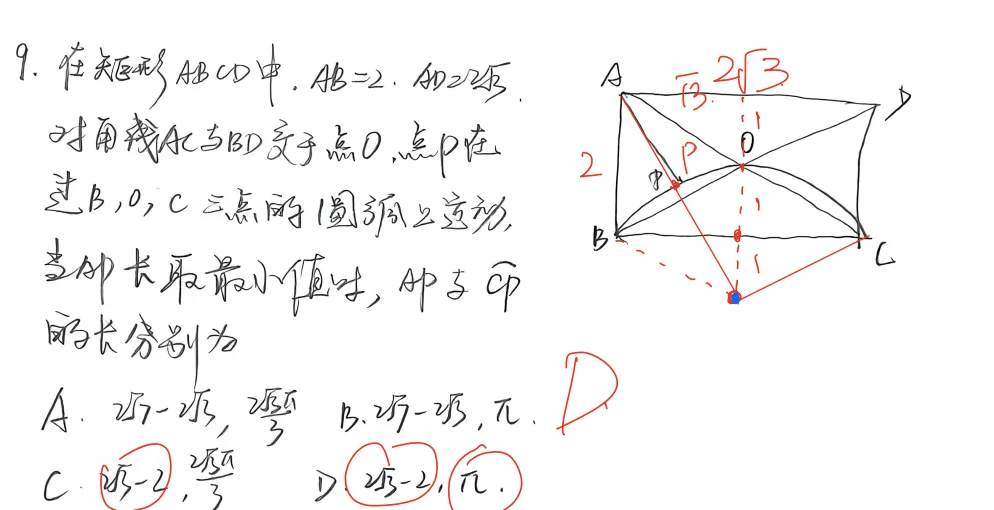 9. 在矩形ABCD中. AB=2. AD=2√3.
对角线AC与BD交于点O, 点P在
过B, O, C三点的圆弧上运动,
当AP长取最小值时, AP与 C͡P
的长分别为
A. 2√7-2√3, 2√3π/3 B. 2√7-2√3, π.
C. 2√3-2, 2√3π/3 D. 2√3-2, π.
D
A 2√3 D
√3. 1
2 P O
P 1
B C
1